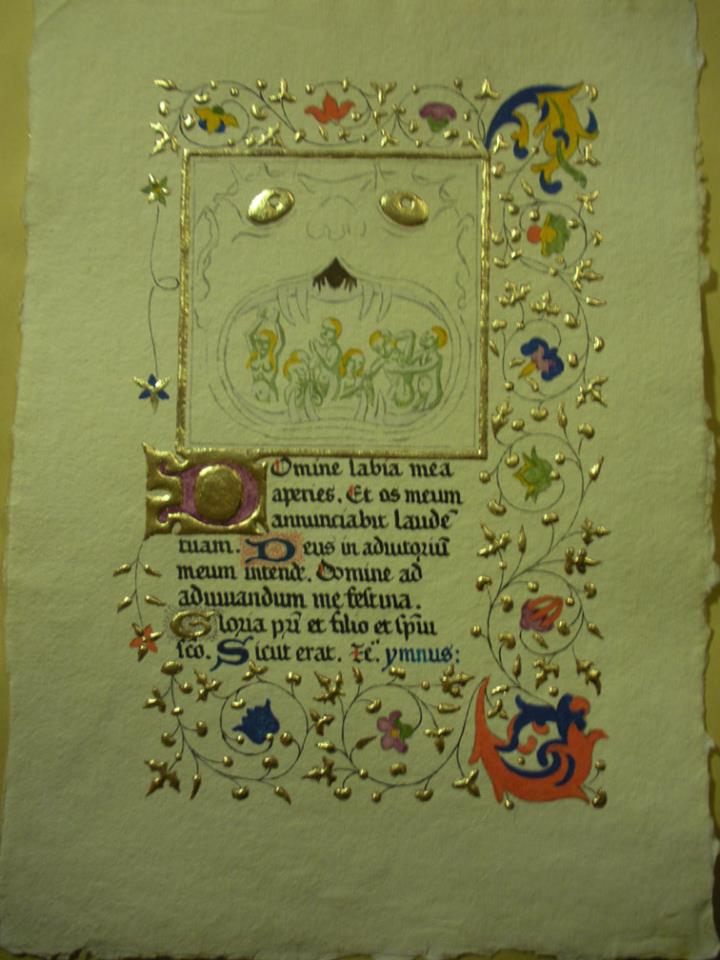 Domine labia mea
aperies. Et os meum
annunciabit laude~
tuam. Deus in adiutoriū
meum intende. Domine ad
adiuuandum me festina.
Gloria pri̅ et filio et spi̅u
sco̅. Sicut erat. Zc̃. ymnus: